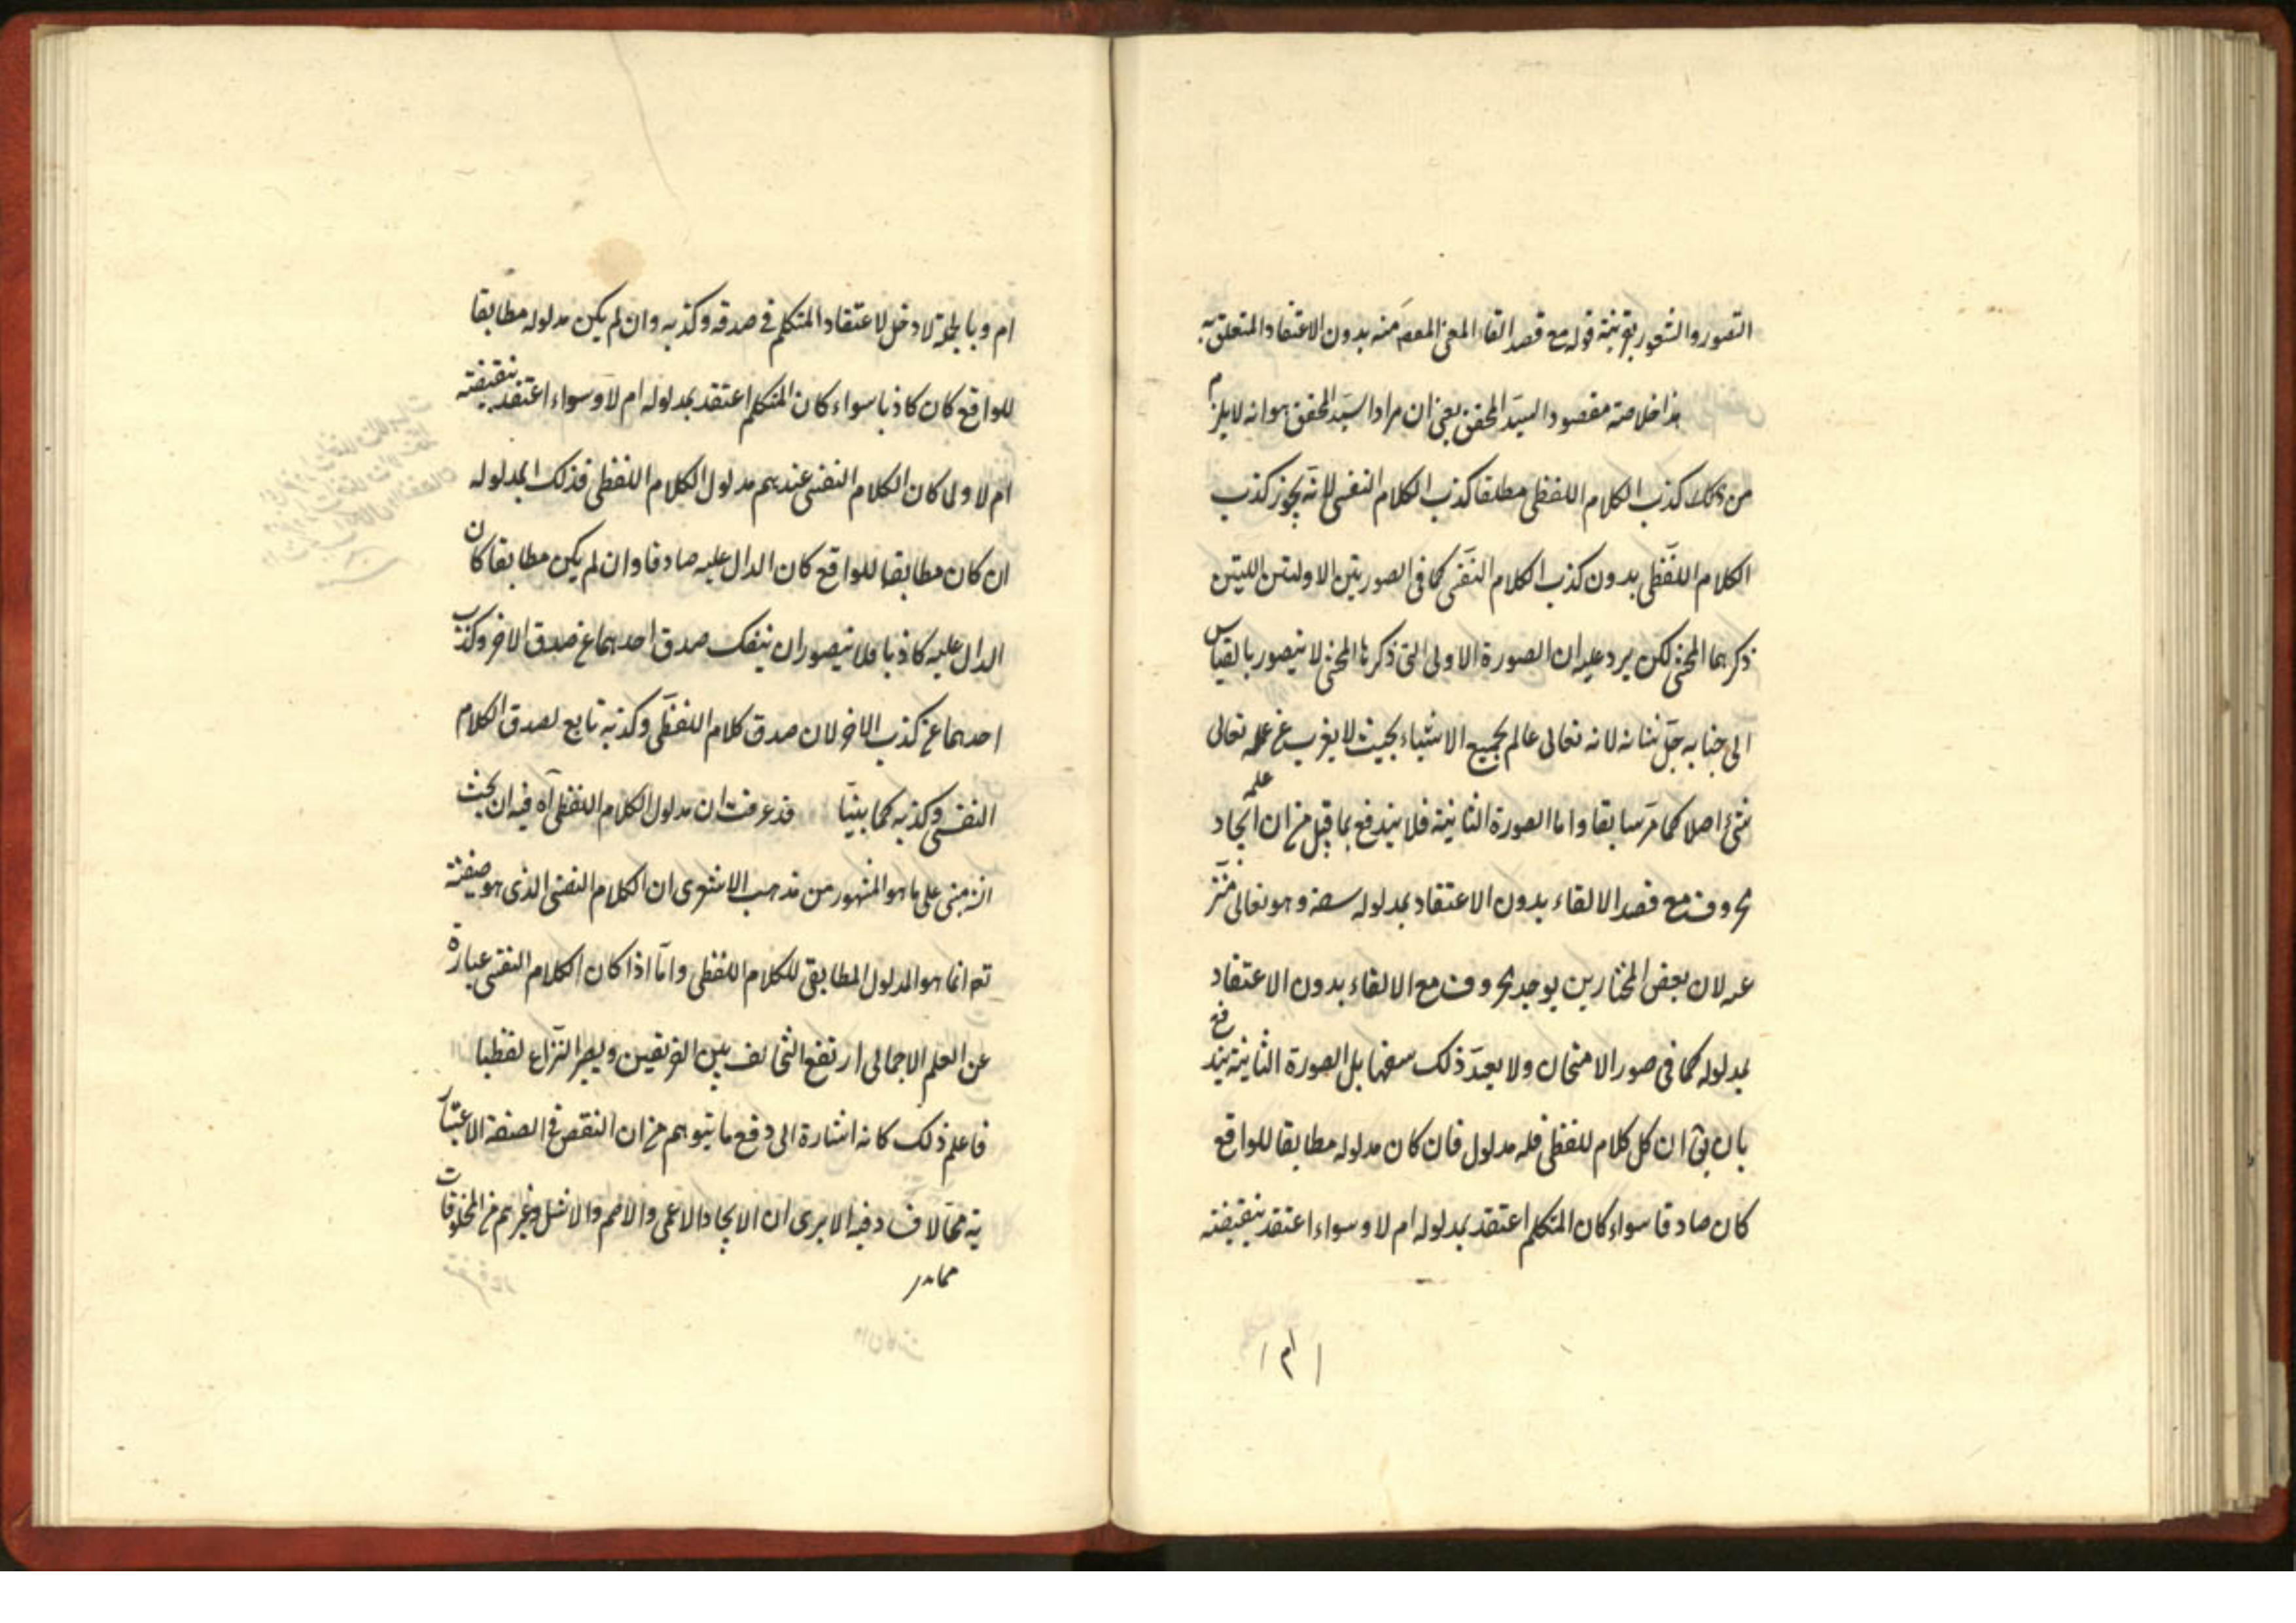 التصور والشعور بقرينة قوله مع قصد القاء المعنى المعصم منه بدون الاعتقاد المتعلق به
هذا خلاصة مقصود السيد المحقق يعنى ان مراد السيد المحقق هو انه لا يلزم
من ذلك كذب الكلام اللفظى مطلقا كذب الكلام النفسى لانه يجوز كذب
الكلام اللفظى بدون كذب الكلام النفسى كما فى الصورتين الاوليتين الليتين
ذكرهما المحشى لكن يرد عليه ان الصورة الاولى التى ذكرها المحشى لا يتصور بالقياس
الى جنابه جل شانه لانه تعالى عالم بجميع الاشياء بحيث لا يغرب عن علمه تعالى
شئ اصلا كما مر سابقا واما الصورة الثانية فلا يندفع بما قيل من ان ايجاد
حروف مع قصد الالقاء بدون الاعتقاد بمدلوله سفه وهو تعالى منزه
عنه لان بعض المختارين يوجد حروف مع الالقاء بدون الاعتقاد
بمدلوله كما فى صور الامتحان ولا يعد ذلك سفها بل الصورة الثانية يندفع
بان يق ان كل كلام للفظى فله مدلول فان كان مدلوله مطابقا للواقع
كان صادقا سواء كان المتكلم اعتقد بمدلوله ام لا وسواء اعتقد بنقيضته
ام لا
ام وبالجملة لا دخل لاعتقاد المتكلم فى صدقه وكذبه وان لم يكن مدلوله مطابقا
للواقع كان كاذبا سواء كان المتكلم اعتقد بمدلوله ام لا وسواء اعتقد بنقيضته
ام لا ولما كان الكلام النفسى عندهم مدلول الكلام اللفظى فذلك المدلوله
ان كان مطابقا للواقع كان الدال عليه صادقا وان لم يكن مطابقا كان
الدال عليه كاذبا فلا يتصور ان ينفك صدق احدهما عن صدق الاخر وكذب
احدهما عن كذب الاخر لان صدق كلام اللفظى وكذبه تابع لصدق الكلام
النفسى وكذبه كما بينا قد عرفت ان مدلول الكلام اللفظى آه فيه ان بحث
انه مبنى على ما هو المشهور من مذهب الاشعرى ان الكلام النفسى الذى هو صفته
تع انما هو المدلول المطابقى للكلام اللفظى واما اذا كان الكلام النفسى عبارة
عن العلم الاجمالى ارتفع التخالف بين الفريقين ويصير النزاع لفظيا
فاعلم ذلك كانه اشارة الى دفع ما يتوهم من ان النقص فى الصفة الاعتبار
ية مما لا فساد فيه الا يرى ان الايجاد الاعمى والاصم والاشل وغيرهم من المخلوقات